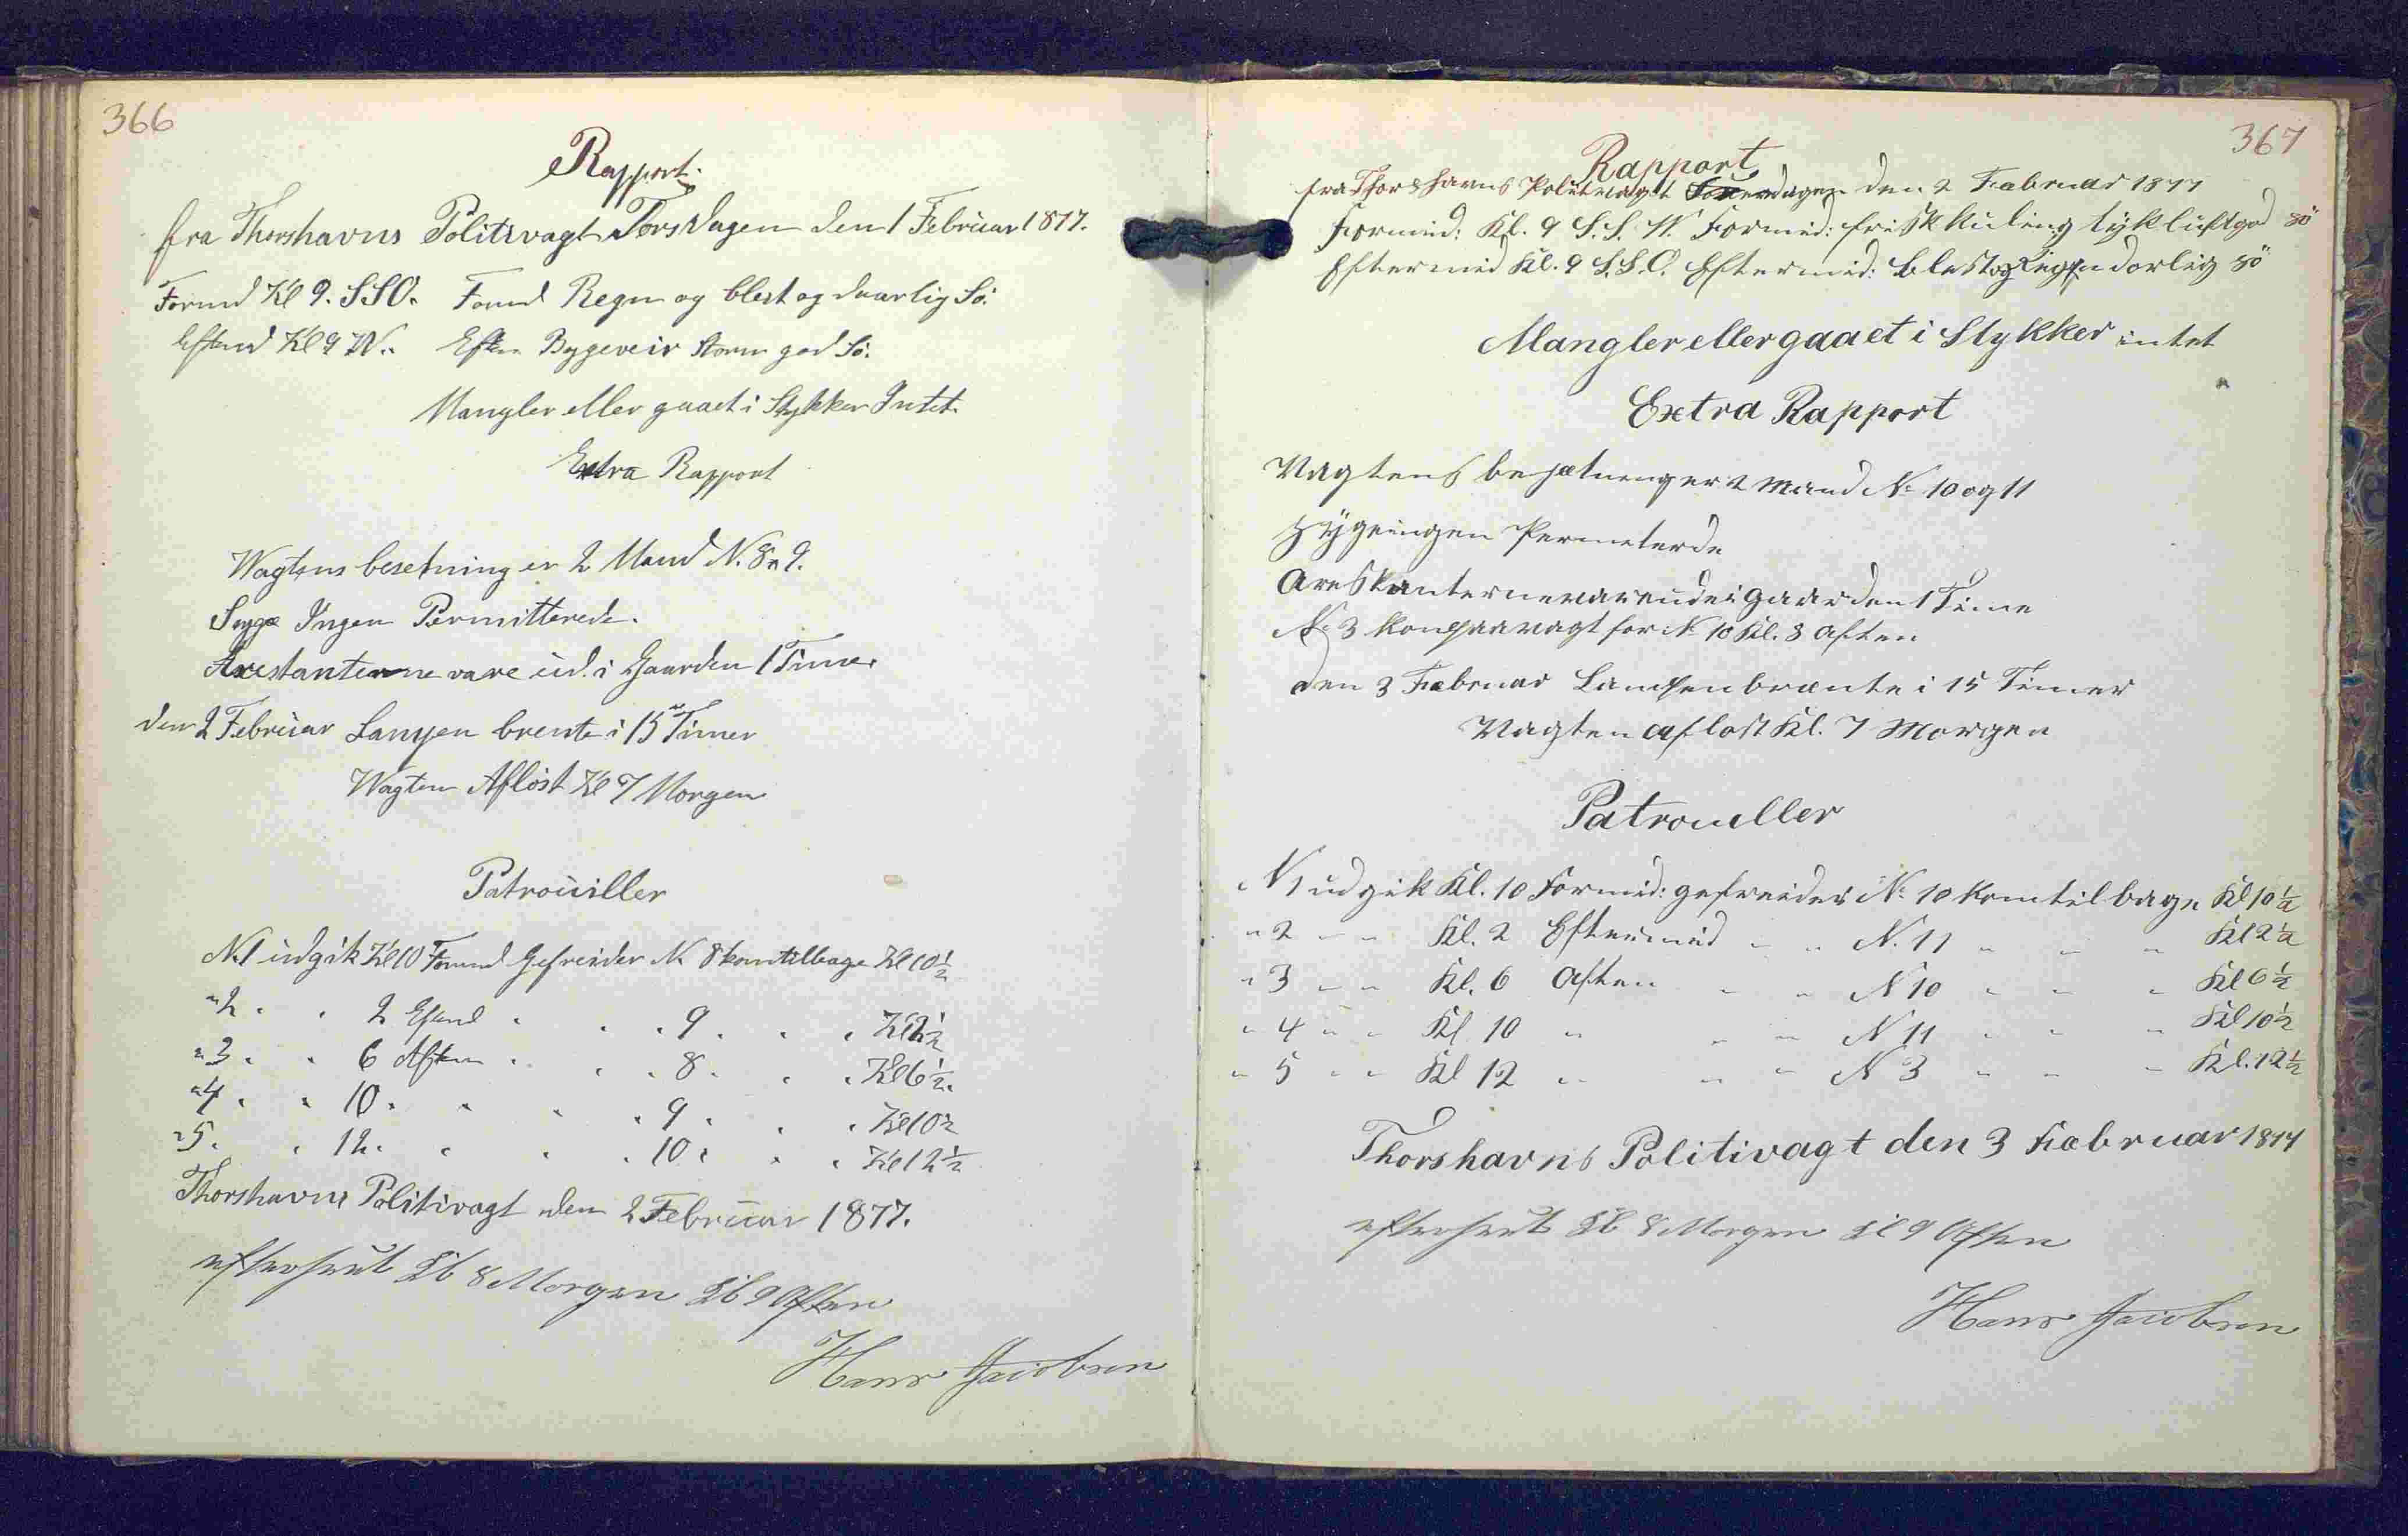 366
Rapport.
fra Thorshavns Politivagt Torsdagen den 1 Februar 1877.
Formd Kl 9. SSO. Formd Regn og blest og daarlig Sö.
Eftmd Kl 9 W. Efter Bygeveir Storm god Sö.
Mangler eller gaaet i Stykker Intet.
Extra Rapport
Wagtens besetning er 2 Mand N. 8 & 9.
Syge Ingen Permitterede.
Arestanterne vare ud i Gaarden 1 Time.
den 2 Februar Lampen brente i 15 Timer
Wagten Aflöst Kl 7 Morgen
Patrouiller
N. 1 udgik Kl 10 Formd Gefreider N. 8 kom tilbage Kl 10 1/2
" 2 " " 2 Eftmd " " " 9 " " " Kl 2 1/2
" 3 " " 6 Aften " " " 8 " " " Kl 6 1/2.
" 4 " " 10 " " " " 9 " " " Kl 10 1/2
" 5 " " 12 " " " " 10 " " " Kl 12 1/2
Thorshavns Politivagt den 2 Februar 1877.
efterseet Kl 8 Morgen Kl 9 Aften
Hans Jacobsen
367
Rapport
fra Thorshavns Politivagt den 2 Februar 1877
Formid: Kl. 9 S.S.W. Formid: frisk Kuling tyk luft god sö
Eftermid Kl. 9 S.S.O. Eftermid: blæst og Regn dorlig sö
Mangler eller gaaet i Stykker intet
Extra Rapport
Vagtens besætning er 2 Mand No 10 og 11
Syge ingen Permeterde
Arestanterne vare ude i Gaarden 1 Time
No 3 kom paa vagt for No 10 Kl. 8 Aften
den 3 Februar Lampen brænte i 15 Timer
Vagten aflost Kl. 7 Morgen
Patrouller
N 1 udgik Kl. 10 Formid: gefreider No 10 kom tilbage Kl 10 1/2
" 2 " " Kl. 2 Eftermid " " N. 11 " " " Kl 2 1/2
" 3 " " Kl. 6 Aften " " N 10 " " " Kl 6 1/2
" 4 " " Kl 10 " " " N 11 " " " Kl 10 1/2
" 5 " " Kl 12 " " " N 3 " " " Kl. 12 1/2
Thorshavns Politivagt den 3 Fæbruar 1877
efterseet Kl 8 Morgen Kl 9 Aften
Hans Jacobsen